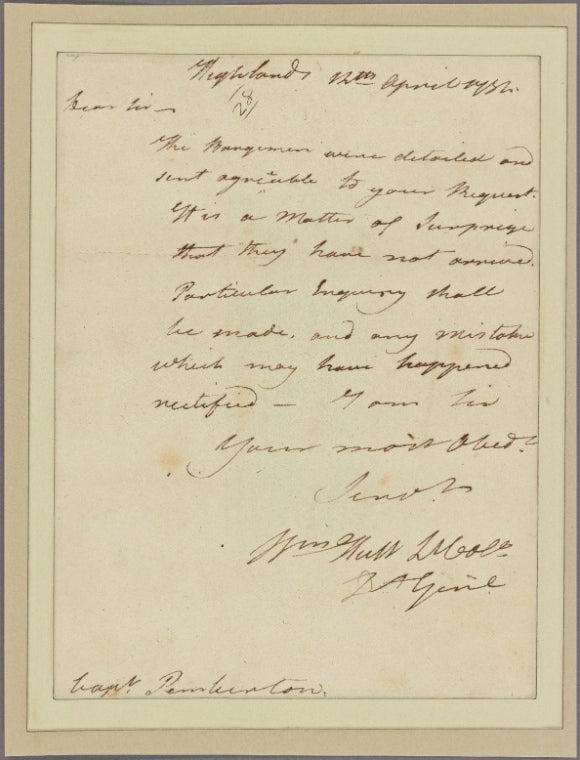 Highlands 12th April 1781.
1/28/
Dear Sir —
The Bargemen were detailed and
sent agreable to your Request.
It is a Matter of Surprize
that they have not arrived.
Particular Enquiry shall
be made, and any mistake
which may have happened
rectified — I am Sir
Your most Obedt
Servt
Wm Hull Lt Colo
D A Genl
Capt. Pemberton.